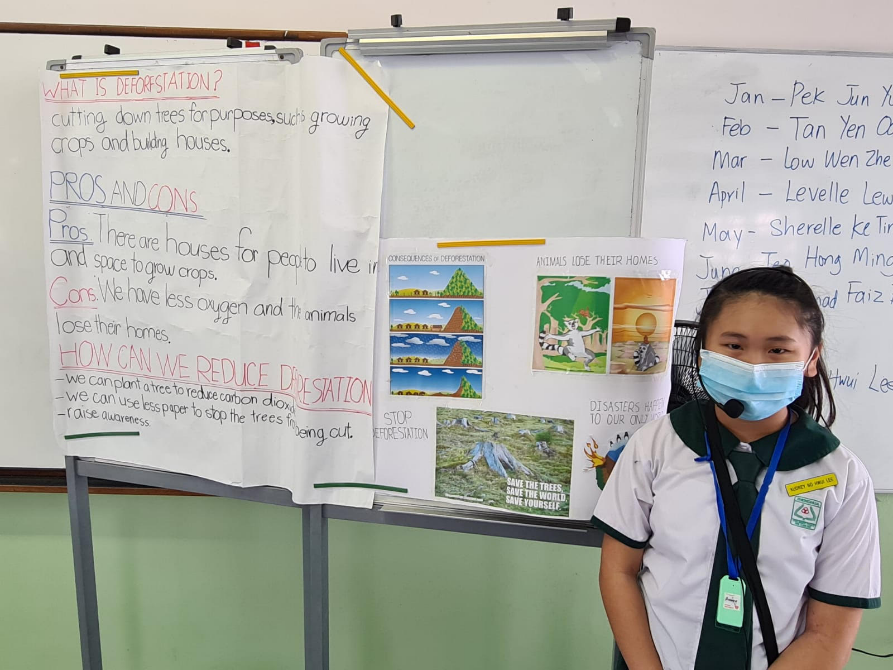 WHAT IS DEFORESTATION?
cutting down trees for purposes, such is growing
crops and building houses.
PROS AND CONS
Pros: There are houses for people to live in
and space to grow crops.
Cons: We have less oxygen and the animals
lose their homes.
HOW CAN WE REDUCE DEFORESTATION
- we can plant a tree to reduce carbon dioxid
- we can use less paper to stop the trees fr being cut.
- raise awareness.
CONSEQUENCES OF DEFORESTATION
ANIMALS LOSE THEIR HOMES
STOP
DEFORESTATION
SAVE THE TREES,
SAVE THE WORLD,
SAVE YOURSELF.
DISASTERS HAPPEN
TO OUR ONLY
Jan - Pek Jun
Feb - Tan Yen
Mar - Low Wen Zhe
April - Levelle Lew
May - Sherelle Ke
Hong Ming
Faiz
AUDREY NG HWUI LEE